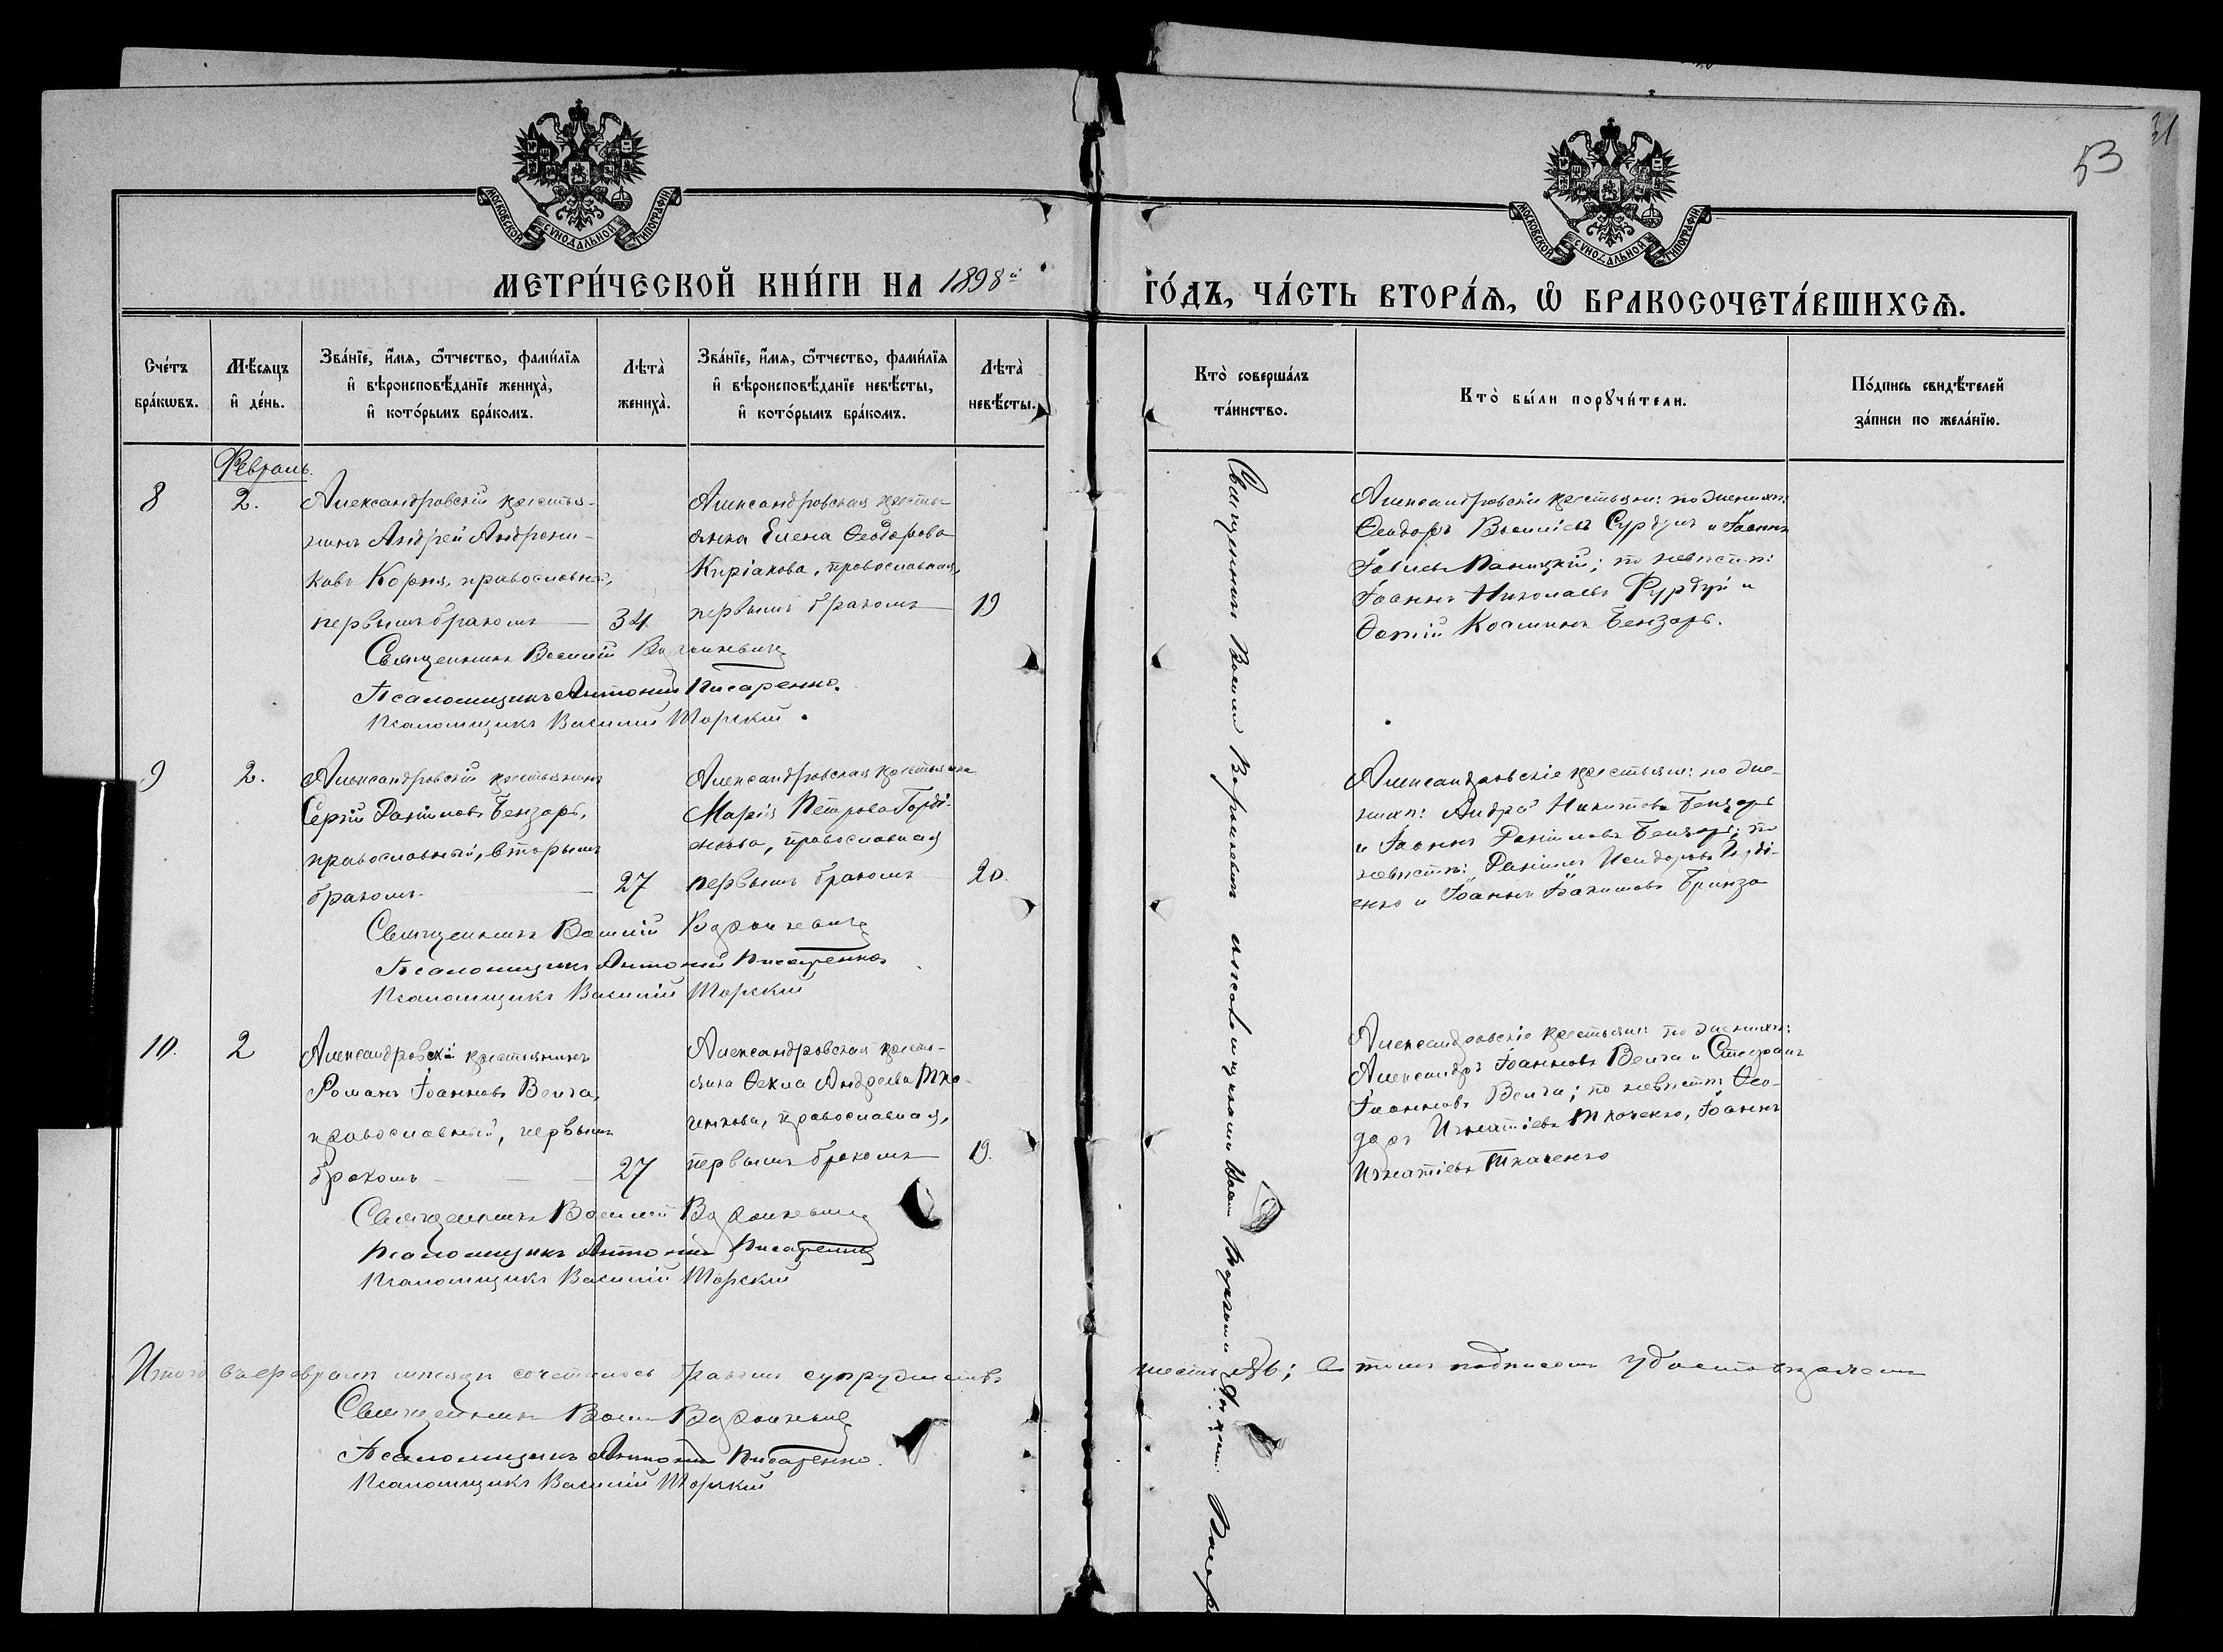 53
31
МОСКОВСКОЙ СѴНОДАЛЬНОЙ ТИПОГРАФІИ
МОСКОВСКОЙ СѴНОДАЛЬНОЙ ТИПОГРАФІИ
МЕТРИ́ЧЕСКОЙ КНИ́ГИ НА 1898й
ГО́ДЪ, ЧА́СТЬ ВТОРА́Ѧ, Ѽ БРАКОСОЧЕТА́ВШИХСѦ.
Сче́тъ
бра́кωвъ.
Мѣ́сяцъ
и҆ де́нь.
Зва́нїе, и҆́мя, ѻ҆́тчество, фами́лїя
и҆ вѣроисповѣ́данїе жениха̀,
и҆ кото́рымъ бра́комъ.
Лѣта̀
жениха̀.
Зва́нїе, и҆́мя, ѻ҆́тчество, фами́лїя
и҆ вѣроисповѣ́данїе невѣ́сты,
и҆ кото́рымъ бра́комъ.
Лѣта̀
невѣ́сты.
Кто̀ соверша́лъ
та́инство.
Кто̀ бы́ли порꙋчи́тели.
По́дпись свидѣ́телей
за́писи по жела́нїю.
Февраль.
8
2.
Александровскій крестья-
нинъ Андрей Андрони-
ковъ Корня, православный,
первымъ бракомъ
34
Александровская кресть-
янка Елена Ѳеодорова
Киріакова, православная,
первымъ бракомъ
19
Александровскіе крестьяне: по женихѣ:
Ѳеодоръ Василіевъ Сурдулъ и Іоаннъ
Паницкій; по невѣстѣ:
Іоаннъ Николаевъ Фурдуй и
Фотій Косминъ Бензарь.
Священникъ Василій
Псаломщикъ Антоній Писаренко.
Псаломщикъ Василій Торскій.
9
2.
Александровскій крестьянинъ
Сергій Даніиловъ Бензарь,
православный, вторымъ
бракомъ
27
Александровская крестьянка
Марія Петрова Горді-
енкова, православная
первымъ бракомъ
20.
Александровскіе крестьяне: по же-
нихѣ: Андрей Никитовъ Бензарь
и Іоаннъ Даніиловъ Бензарь; по
невѣстѣ: Даніилъ Исидоровъ Горді-
енко и Іоаннъ Іоакимовъ Бринза
Священникъ Василій
Псаломщикъ Антоній Писаренко
Псаломщикъ Василій Торскій
10.
2
Александровскій крестьянинъ
Романъ Іоанновъ Велча,
православный, первымъ
бракомъ
27
Александровская кресть-
янка Ѳекла Андреева Тка-
ченкова, православная,
первымъ бракомъ
19.
Александровскіе крестьяне: по женихѣ:
Александръ Іоанновъ Велча и Стефанъ
Іоанновъ Велча; по невѣстѣ: Ѳео-
доръ Игнатіевъ Ткаченко, Іоаннъ
Игнатіевъ Ткаченко
Священникъ Василій
Псаломщикъ Антоній Писаренко
Псаломщикъ Василій Торскій
Священникъ Василій
Итого въ февралѣ мѣсяцѣ сочеталось бракомъ супружествъ
въ томъ подписомъ удостовѣряемъ
Священникъ
Псаломщикъ Антоній Писаренко.
Псаломщикъ Василій Торскій